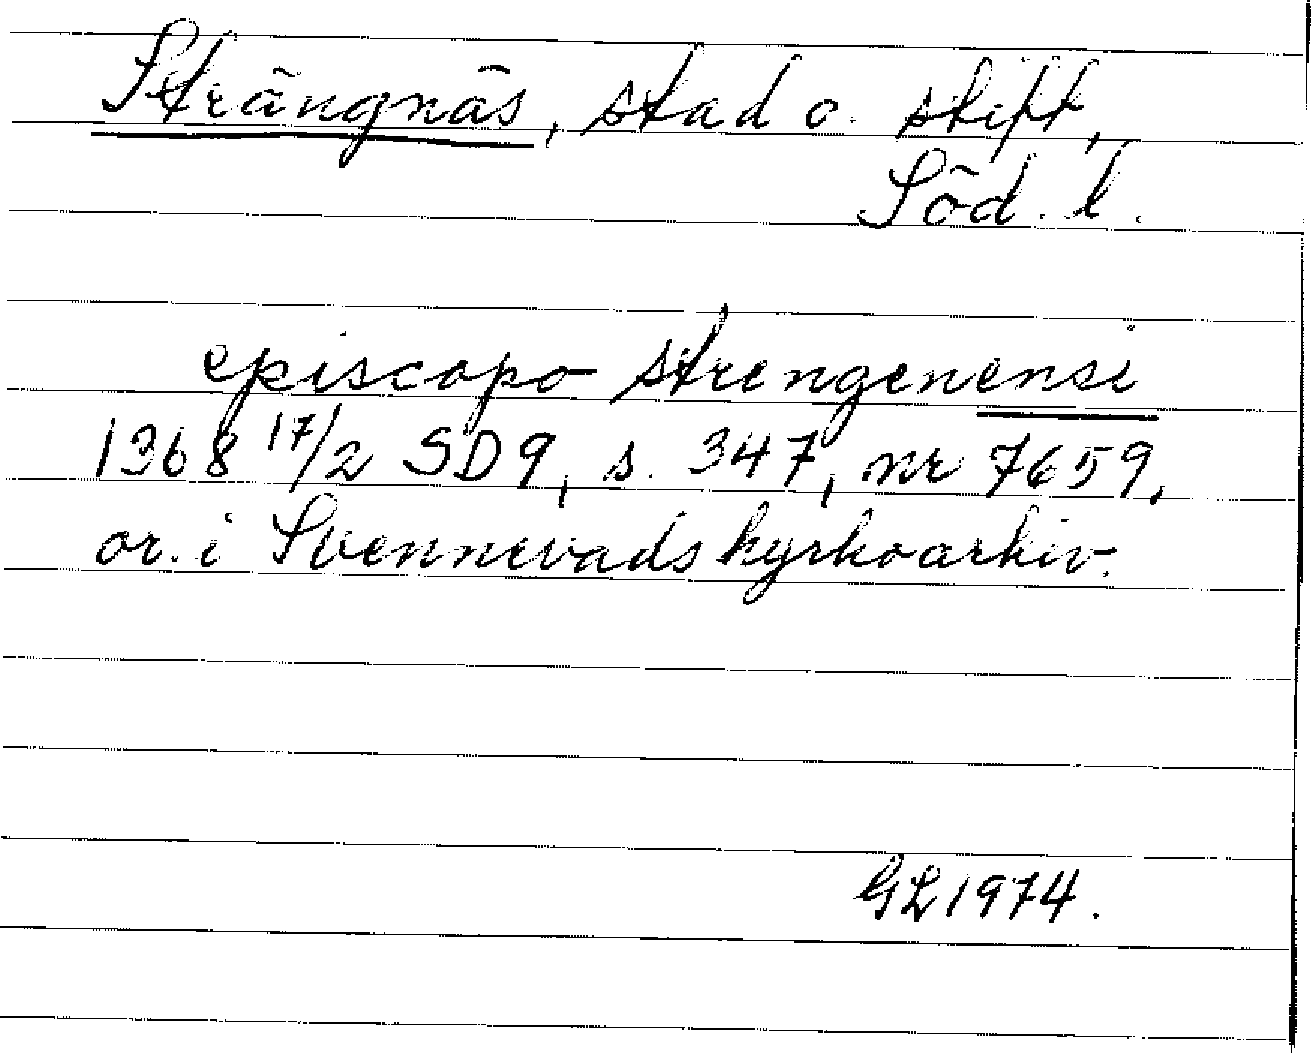 Strängnäs, stad o. stift,
Söd. l.
episcopo strengenensi
1368 17/2 SD9, s. 347, nr 7659,
or. i Svennevads kyrkoarkiv.
GL 1974.